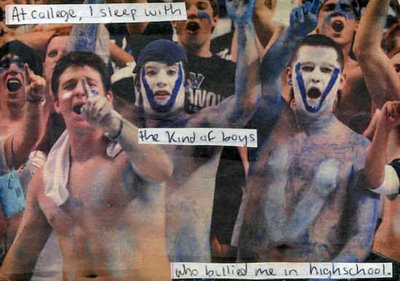 At college, I sleep with
the kind of boys
who bullied me in highschool.